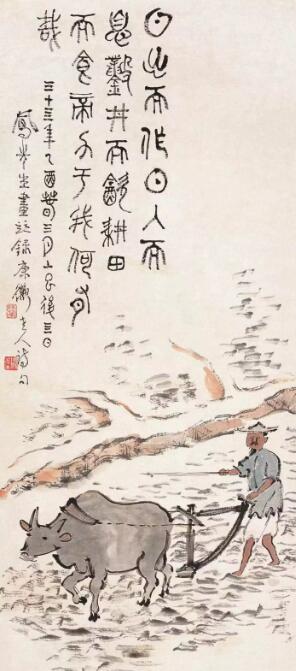 日出而作日入而
息鑿井而飲耕田
而食帝力于我何有
哉
年乙酉三月上巳後三日
鳳先生畫並錄康衢老人詩句